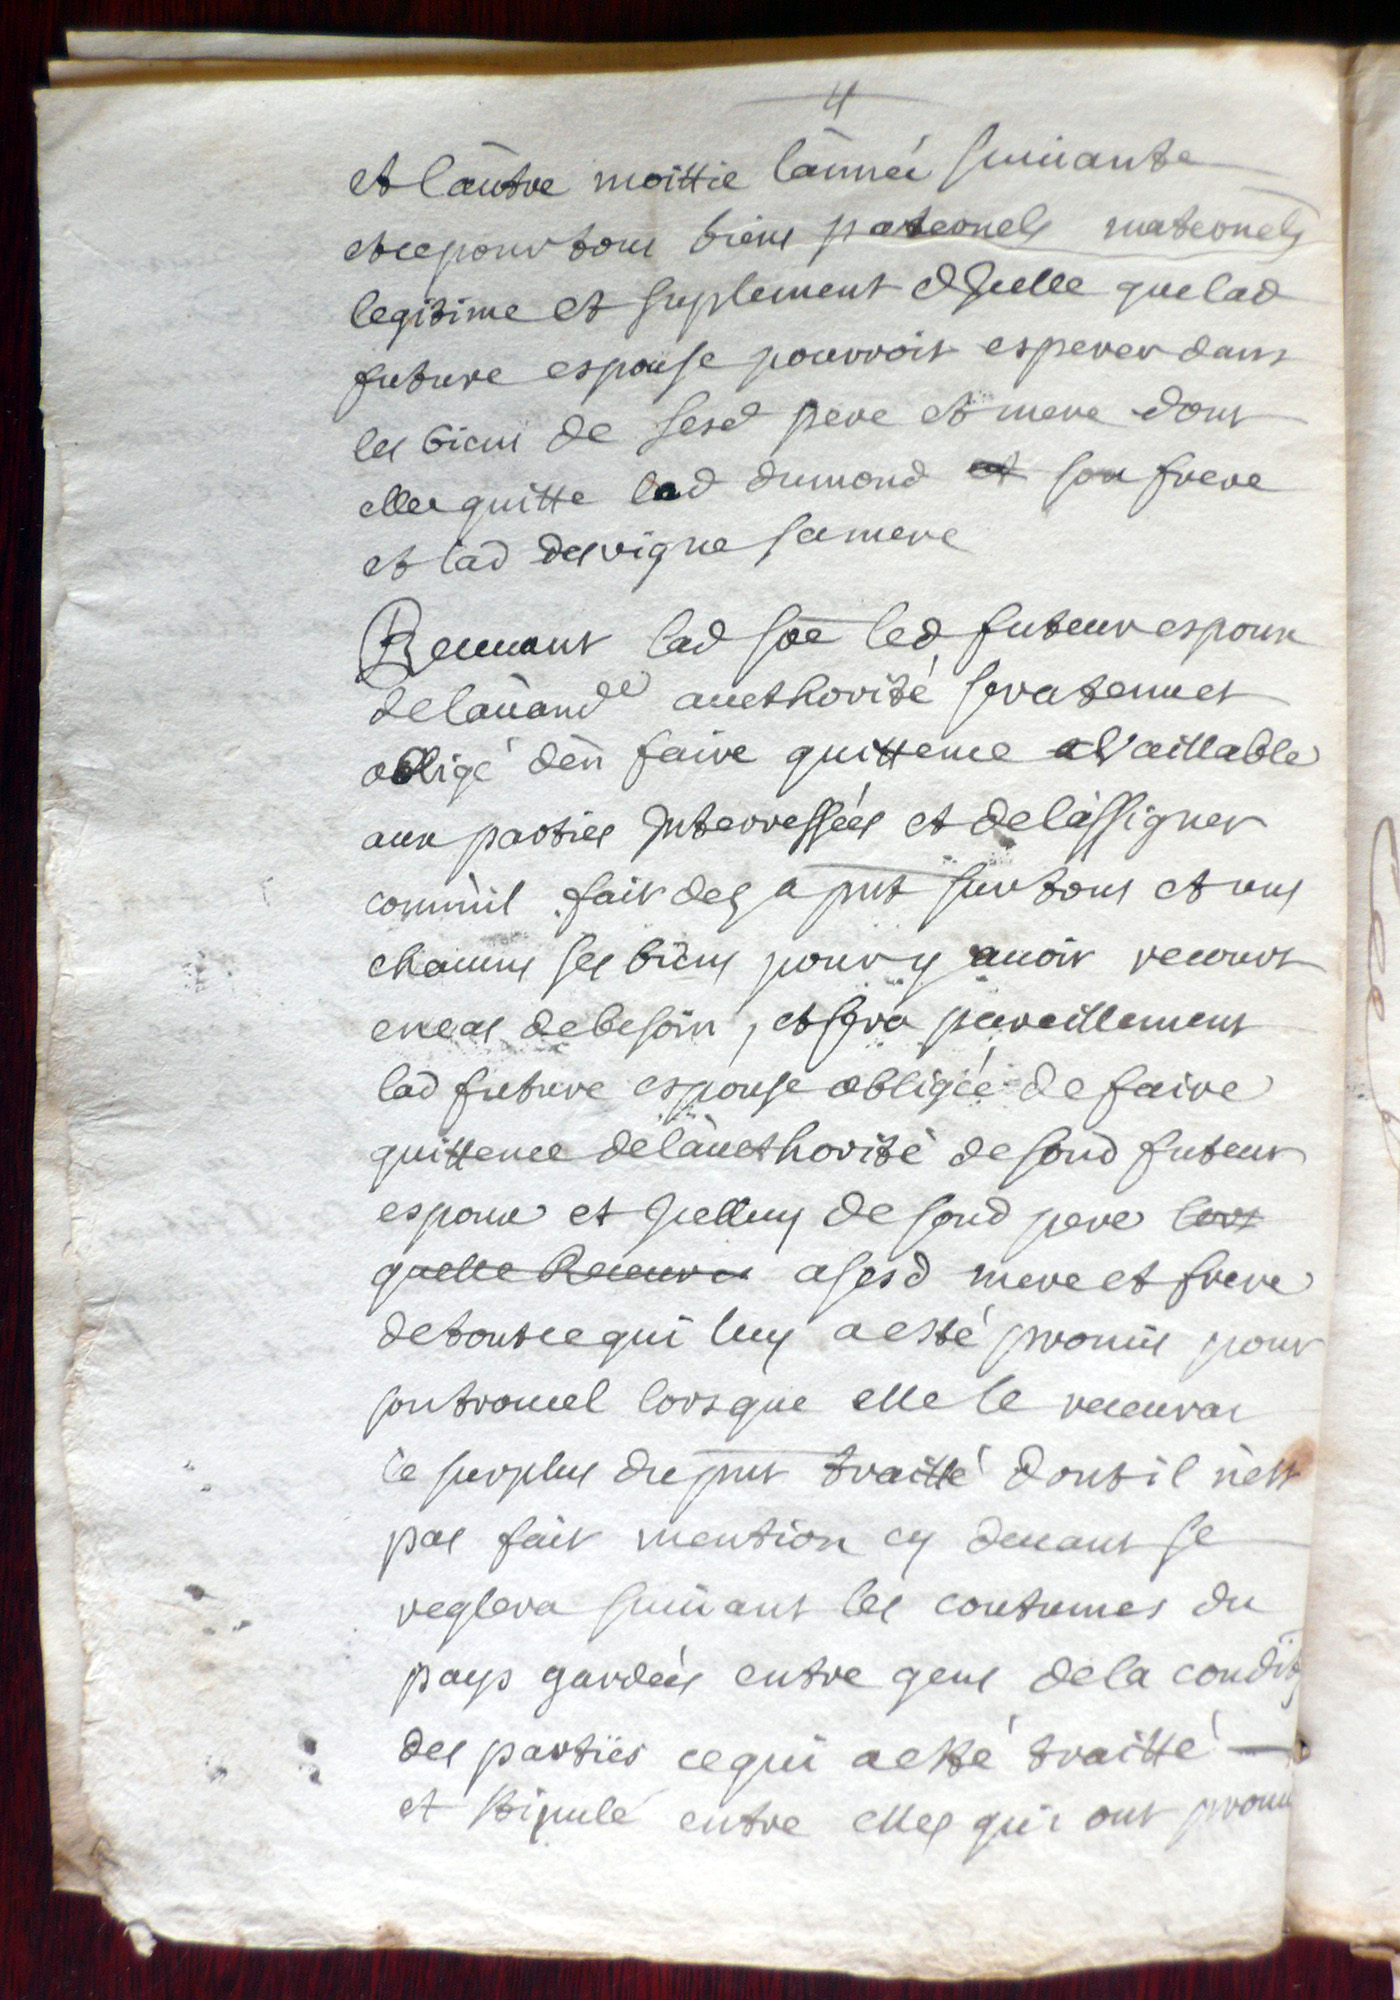 4
et làutre moittie lànnéé suiuante
et ce pour tous biens paternels maternels
legitime et suplement dJcelle que lad
future espouse pourroit esperer dans
les biens de sesd pere et mere dont
elle quitte led dumond et son frere
et lad desvigne sa mere
Receuant lad soe led futeur espoux
delàuand auethorité sera tenu et
obligé dèn faire quittence vaillable
aux parties Jnterressées et de làssigner
comm'il fait des a pnt sur tous et uns
chacuns ses biens pour y auoir recours
en cas de besoin, et sera pareillement
lad future espouse obligée de faire
quittence delàuethorité de sond futeur
espoux et Jcelluy de sond pere lors
quelle Receura a sesd mere et frere
de tout ce qui luy a esté promis pour
son trousel lorsque elle le receurai
le surplus du pnt traitté dont il n'est
pas fait mention cy deuant se
reglera suiuant les coutumes du
pays gardées entre gens de la condit
des parties ce qui a esté traitté
et stipulé entre elles qui ont promi